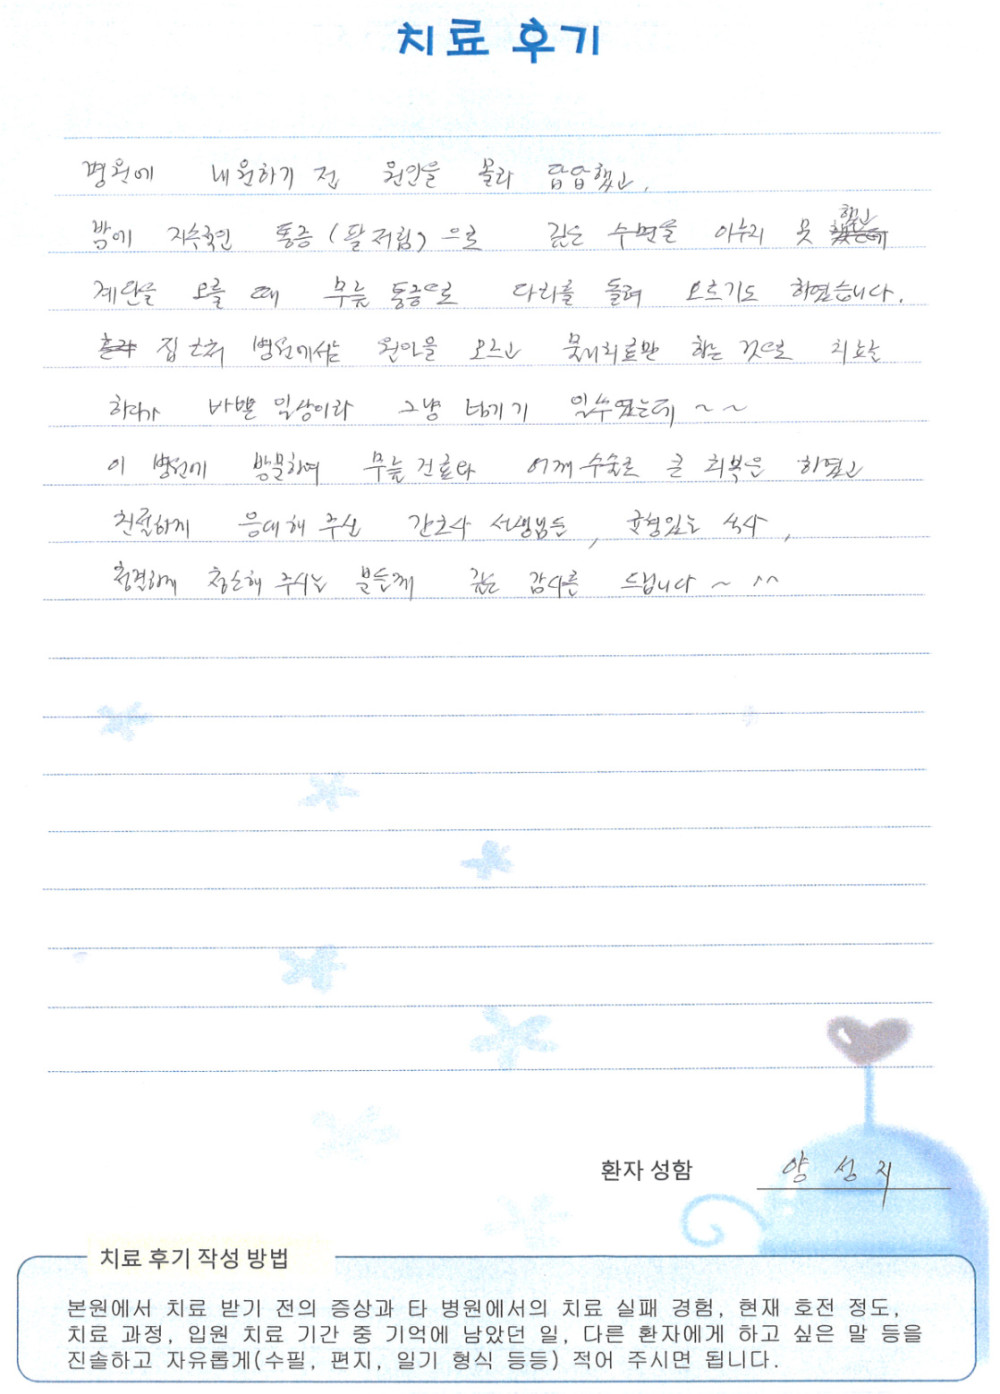 치료 후기
병원에 내원하기 전 원인을 몰라 답답했고,
밤에 지속적인 통증 (팔저림) 으로 깊은 수면을 이루지 못 했고
계단을 오를 때 무릎 통증으로 다리를 돌려 오르기도 하였습니다.
집 근처 병원에서는 원인을 모르고 물리치료만 하는 것으로 치료를
하다가 바쁜 일상이라 그냥 넘기기 일쑤였는데 ~ ~
이 병원에 방문하여 무릎 치료와 어깨 수술로 큰 회복은 하였고
친절하게 응대해 주신 간호사 선생님들, 균형있는 식사,
청결하게 청소해 주시는 분들께 깊은 감사를 드립니다 ~ ^^
환자 성함 양 성 지
치료 후기 작성 방법
본원에서 치료 받기 전의 증상과 타 병원에서의 치료 실패 경험, 현재 호전 정도,
치료 과정, 입원 치료 기간 중 기억에 남았던 일, 다른 환자에게 하고 싶은 말 등을
진솔하고 자유롭게(수필, 편지, 일기 형식 등등) 적어 주시면 됩니다.